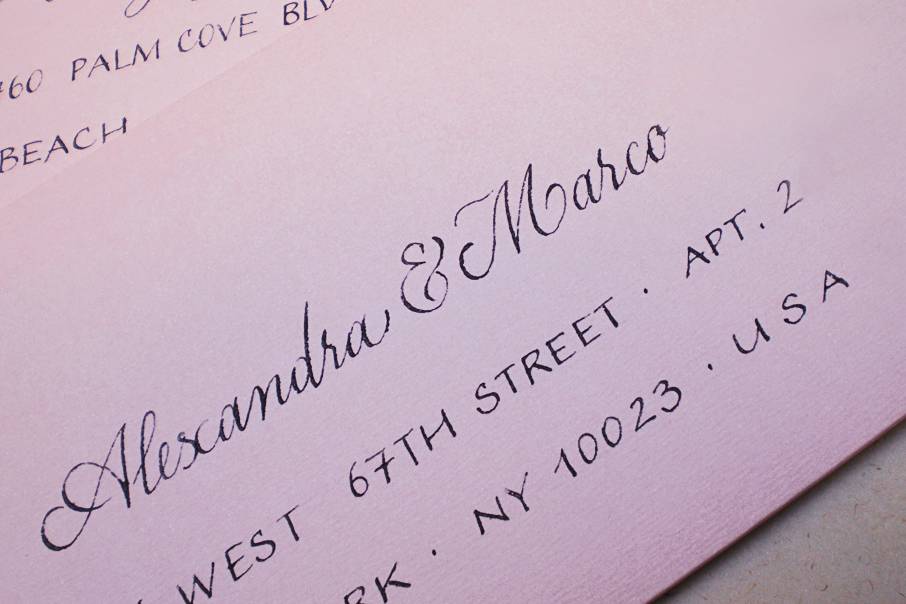 60 PALM COVE BLV
BEACH
Alexandra & Marco
WEST 67TH STREET · APT. 2
RK · NY 10023 · USA